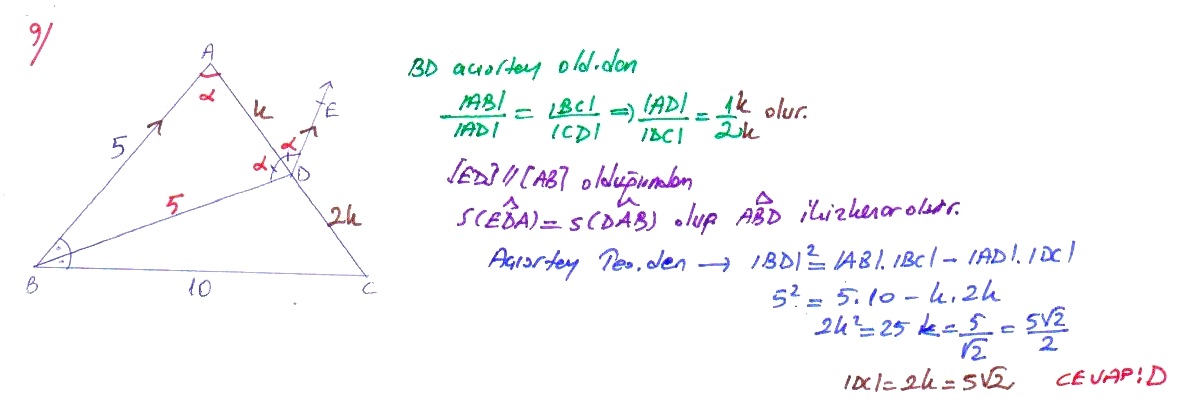 9/
A
α
k
E
5
α
α
D
5
2k
B
10
C
BD açıortay old.dan
|AB|/|AD| = |BC|/|CD| ⇒ |AD|/|DC| = 1k/2k olur.
[ED] // [AB] olduğundan
s(EDA) = s(DAB) olup ABD ikizkenar olur.
Açıortay Teo.den → |BD|² = |AB|.|BC| - |AD|.|DC|
5² = 5.10 - k.2k
2k² = 25 k = 5/√2 = 5√2/2
|DC| = 2k = 5√2 CEVAP: D